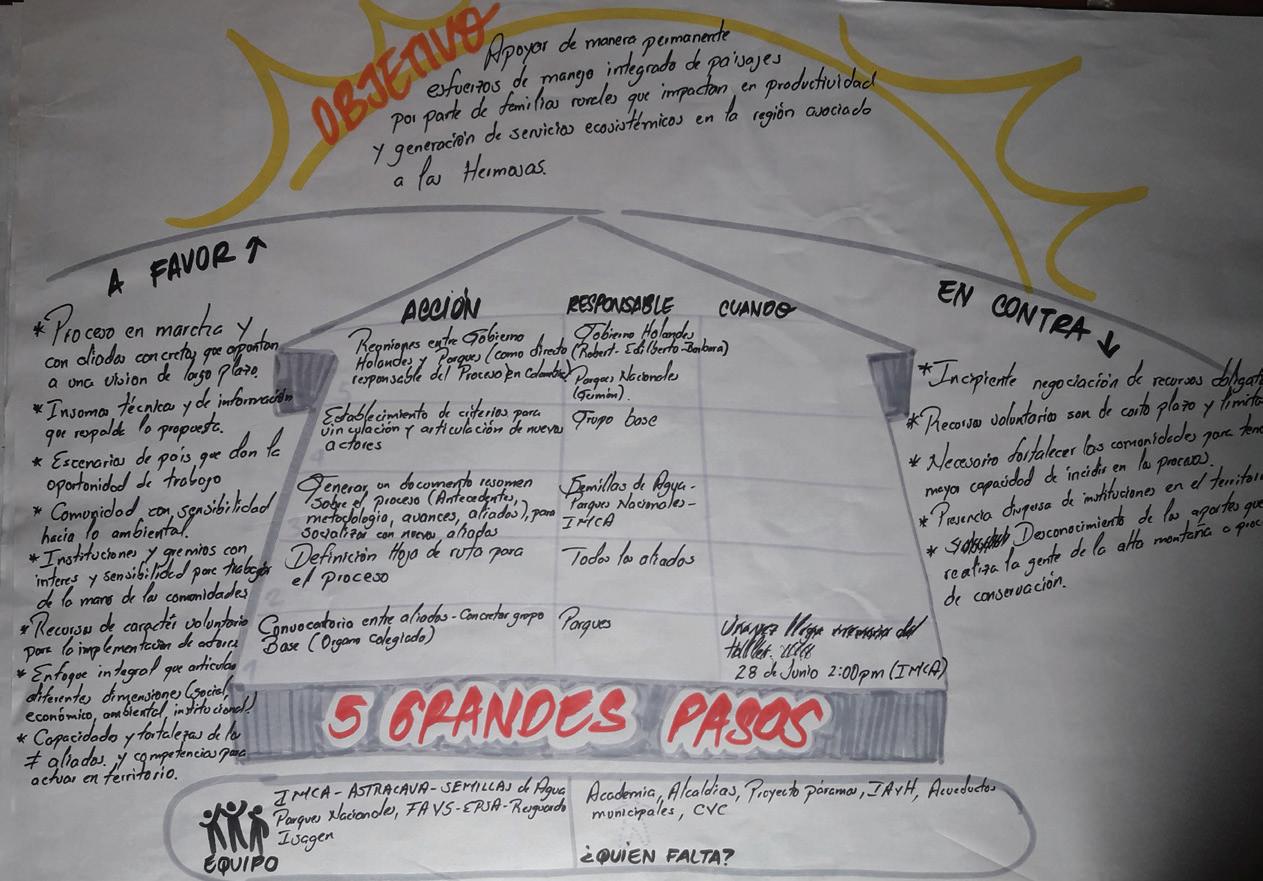 OBJETIVO
Apoyar de manera permanente
esfuerzos de manejo integrado de paisajes
por parte de familias rurales que impactan en productividad
y generación de servicios ecosistémicos en la región asociado
a las Hermosas.
A FAVOR ↑
* Proceso en marcha y
con aliados concretos que apuntan
a una vision de largo plazo.
* Insumos técnicos y de información
que respalde la propuesta.
* Escenarios de país que dan la
oportunidad de trabajo
* Comunidad con sensibilidad
hacia lo ambiental.
* Instituciones y gremios con
interes y sensibilidad para trabajar
de la mano de las comunidades
* Recursos de caractér voluntario
para la implementación de
* Enfoque integral que articula
diferentes dimensiones (social,
económico, ambiental, institucional)
* Capacidades y fortalezas de los
≠ aliados y competencias para
actuar en territorio.
ACCIÓN RESPONSABLE CUANDO
Reuniones entre Gobierno
Holandes y Parques (como directo
responsable del Proceso en Colombia)
Gobierno Holandes
(Robert - Edilberto - Barbara)
Parques Nacionales
(Germán).
5
Establecimiento de criterios para
vinculación y articulación de nuevos
actores
Grupo base
4
Generar un documento resumen
sobre el proceso (Antecedentes,
metodologia, avances, aliados), para
socializar con nuevos aliados
Semillas de Agua -
Parques Nacionales -
IMCA
3
Definición Hoja de ruta para
el proceso
Todos los aliados
2
Convocatoria entre aliados - Concretar grupo
Base (Organo Colegiado)
Parques
Una vez llegue memoria del
taller.
28 de Junio 2:00pm (IMCA)
1
EN CONTRA ↓
* Incipiente negociación de recursos obligat
* Recursos voluntarios son de corto plazo y limita
* Necesario fortalecer las comunidades para ten
mayor capacidad de incidir en los procesos.
* Presencia dispersa de instituciones en el territori
* Desconocimiento de los aportes que
realiza la gente de la alta montaña a proc
de conservación.
5 GRANDES PASOS
IMCA - ASTRACAVA - SEMILLAS de Agua
Parques Nacionales, FAVS - EPSA - Resguardo
Isagen
EQUIPO
Academia, Alcaldias, Proyecto paramos, IAvH, Acueductos
municipales, CVC
¿QUIEN FALTA?